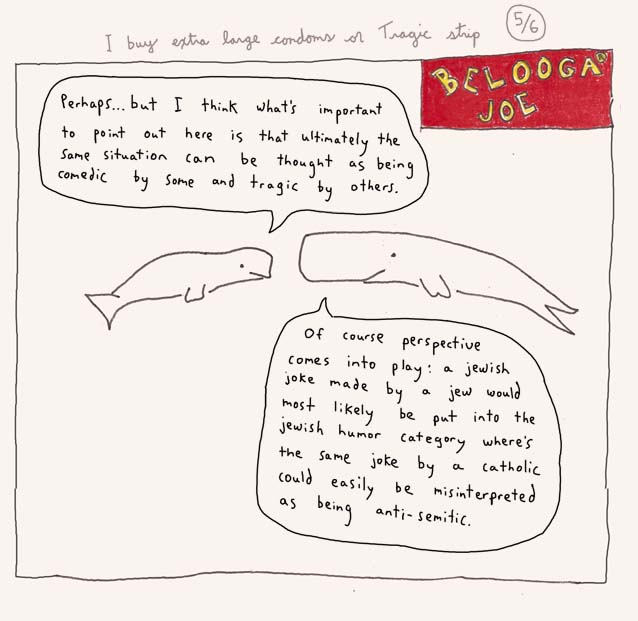 I buy extra large condoms or Tragic strip
5/6
BELOOGA
JOE
Perhaps... but I think what's important
to point out here is that ultimately the
same situation can be thought as being
comedic by some and tragic by others.
Of course perspective
comes into play: a jewish
joke made by a jew would
most likely be put into the
jewish humor category where's
the same joke by a catholic
could easily be misinterpreted
as being anti-semitic.